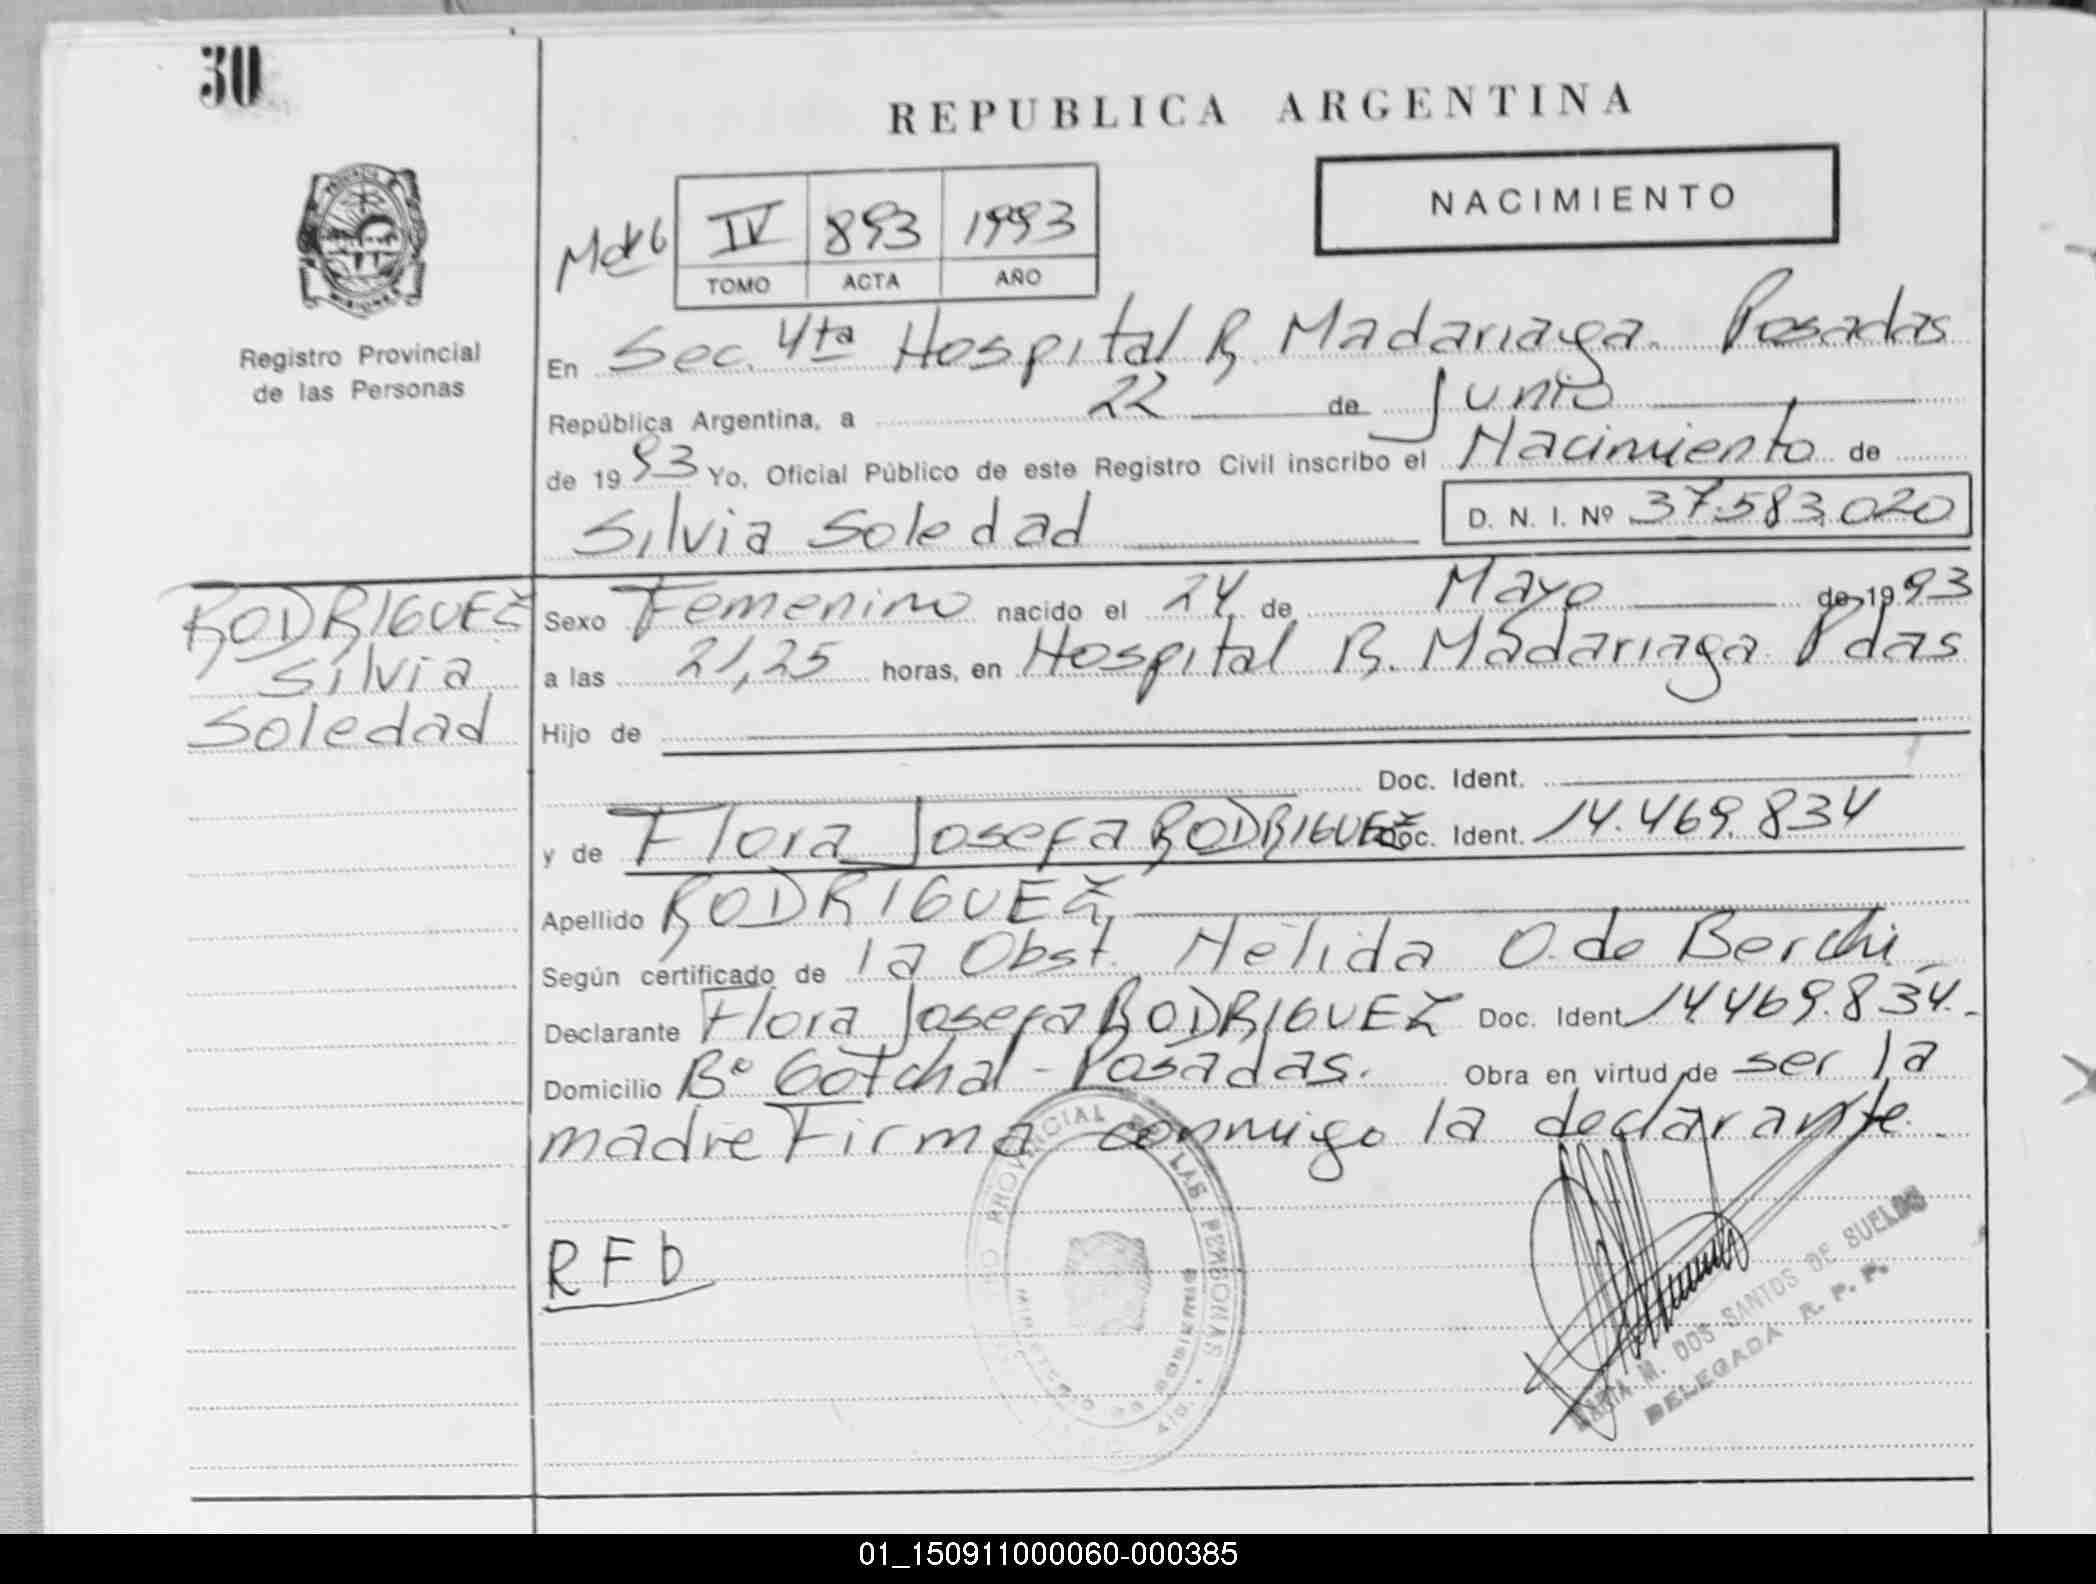 30
REPUBLICA ARGENTINA
NACIMIENTO
IV 893 1993
TOMO ACTA AÑO
Registro Provincial
de las Personas
En Sec. 4ta Hospital R. Madariaga. Posadas
República Argentina, a 22 de Junio
de 1993 Yo, Oficial Público de este Registro Civil inscribo el Nacimiento de
Silvia Soledad D. N. I. Nº 37.583.020
RODRIGUEZ
Silvia
Soledad
Sexo Femenino nacido el 24 de Mayo de 1993
a las 21,25 horas, en Hospital R. Madariaga Pdas
Hijo de
Doc. Ident.
y de Flora Josefa RODRIGUEZ Doc. Ident. 14.469.834
Apellido RODRIGUEZ
Según certificado de la Obst. Nelida O. de Berchi
Declarante Flora Josefa RODRIGUEZ Doc. Ident 14.469.834.-
Domicilio Bº Gotchal - Posadas. Obra en virtud de ser la
madre Firma conmigo la declarante.
RFD
PROVINCIAL DE LAS PERSONAS
MINISTERIO DE GOBIERNO
M. DOS SANTOS DE SUELDO
DELEGADA R. P. P.
01_150911000060-000385